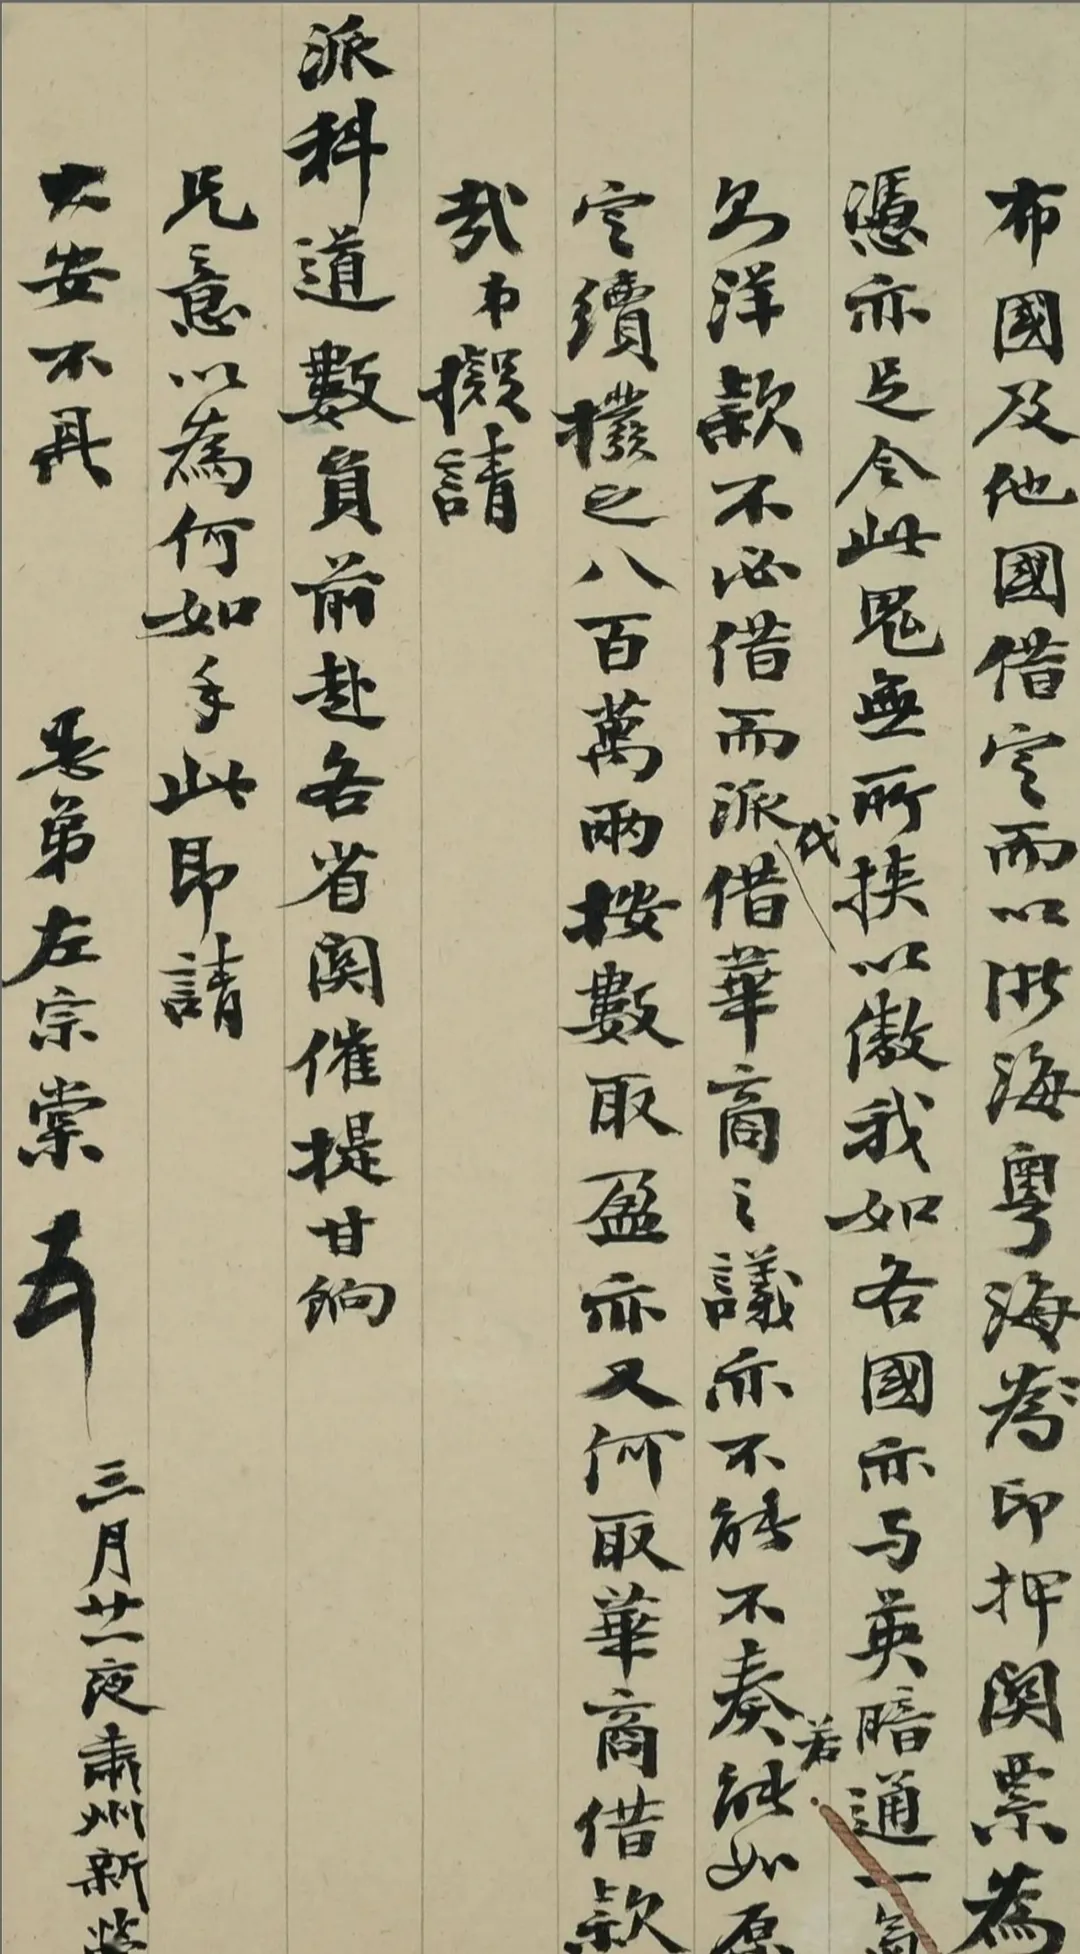 布國及他國借定而以浙海粵海為印押関票為
憑亦足令此鬼無所挾以傲我如各國亦与英暗通一氣
則洋款不必借而派代借華商之議亦不能不奏若能如原
定續撥之八百萬兩按數取盈亦又何取華商借款
哉弟擬請
派科道數員前赴各省関催提甘餉
兄意以為何如手此即請
大安不具
愚弟左宗棠
三月廿一夜肅州新營